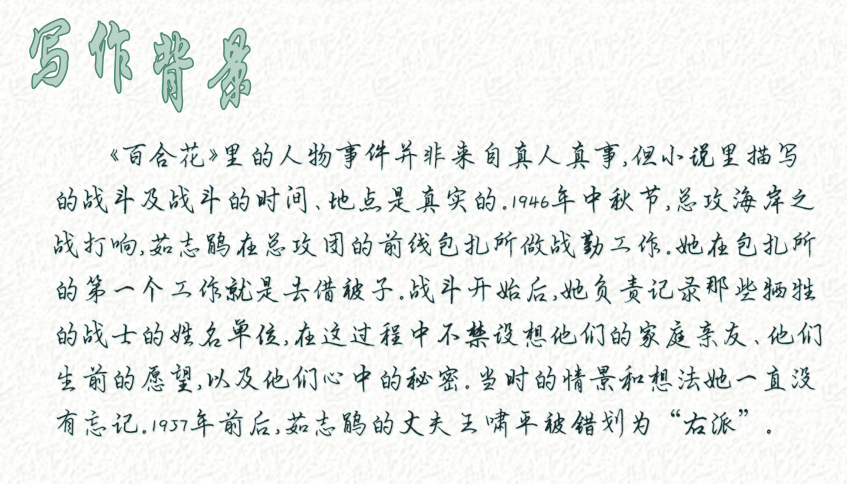 写作背景
《百合花》里的人物事件并非来自真人真事,但小说里描写
的战斗及战斗的时间、地点是真实的.1946年中秋节,总攻海岸之
战打响,茹志鹃在总攻团的前线包扎所做战勤工作。她在包扎所
的第一个工作就是去借被子.战斗开始后,她负责记录那些牺牲
的战士的姓名单位,在这过程中不禁设想他们的家庭亲友、他们
生前的愿望,以及他们心中的秘密.当时的情景和想法她一直没
有忘记.1957年前后,茹志鹃的丈夫王啸平被错划为“右派”。